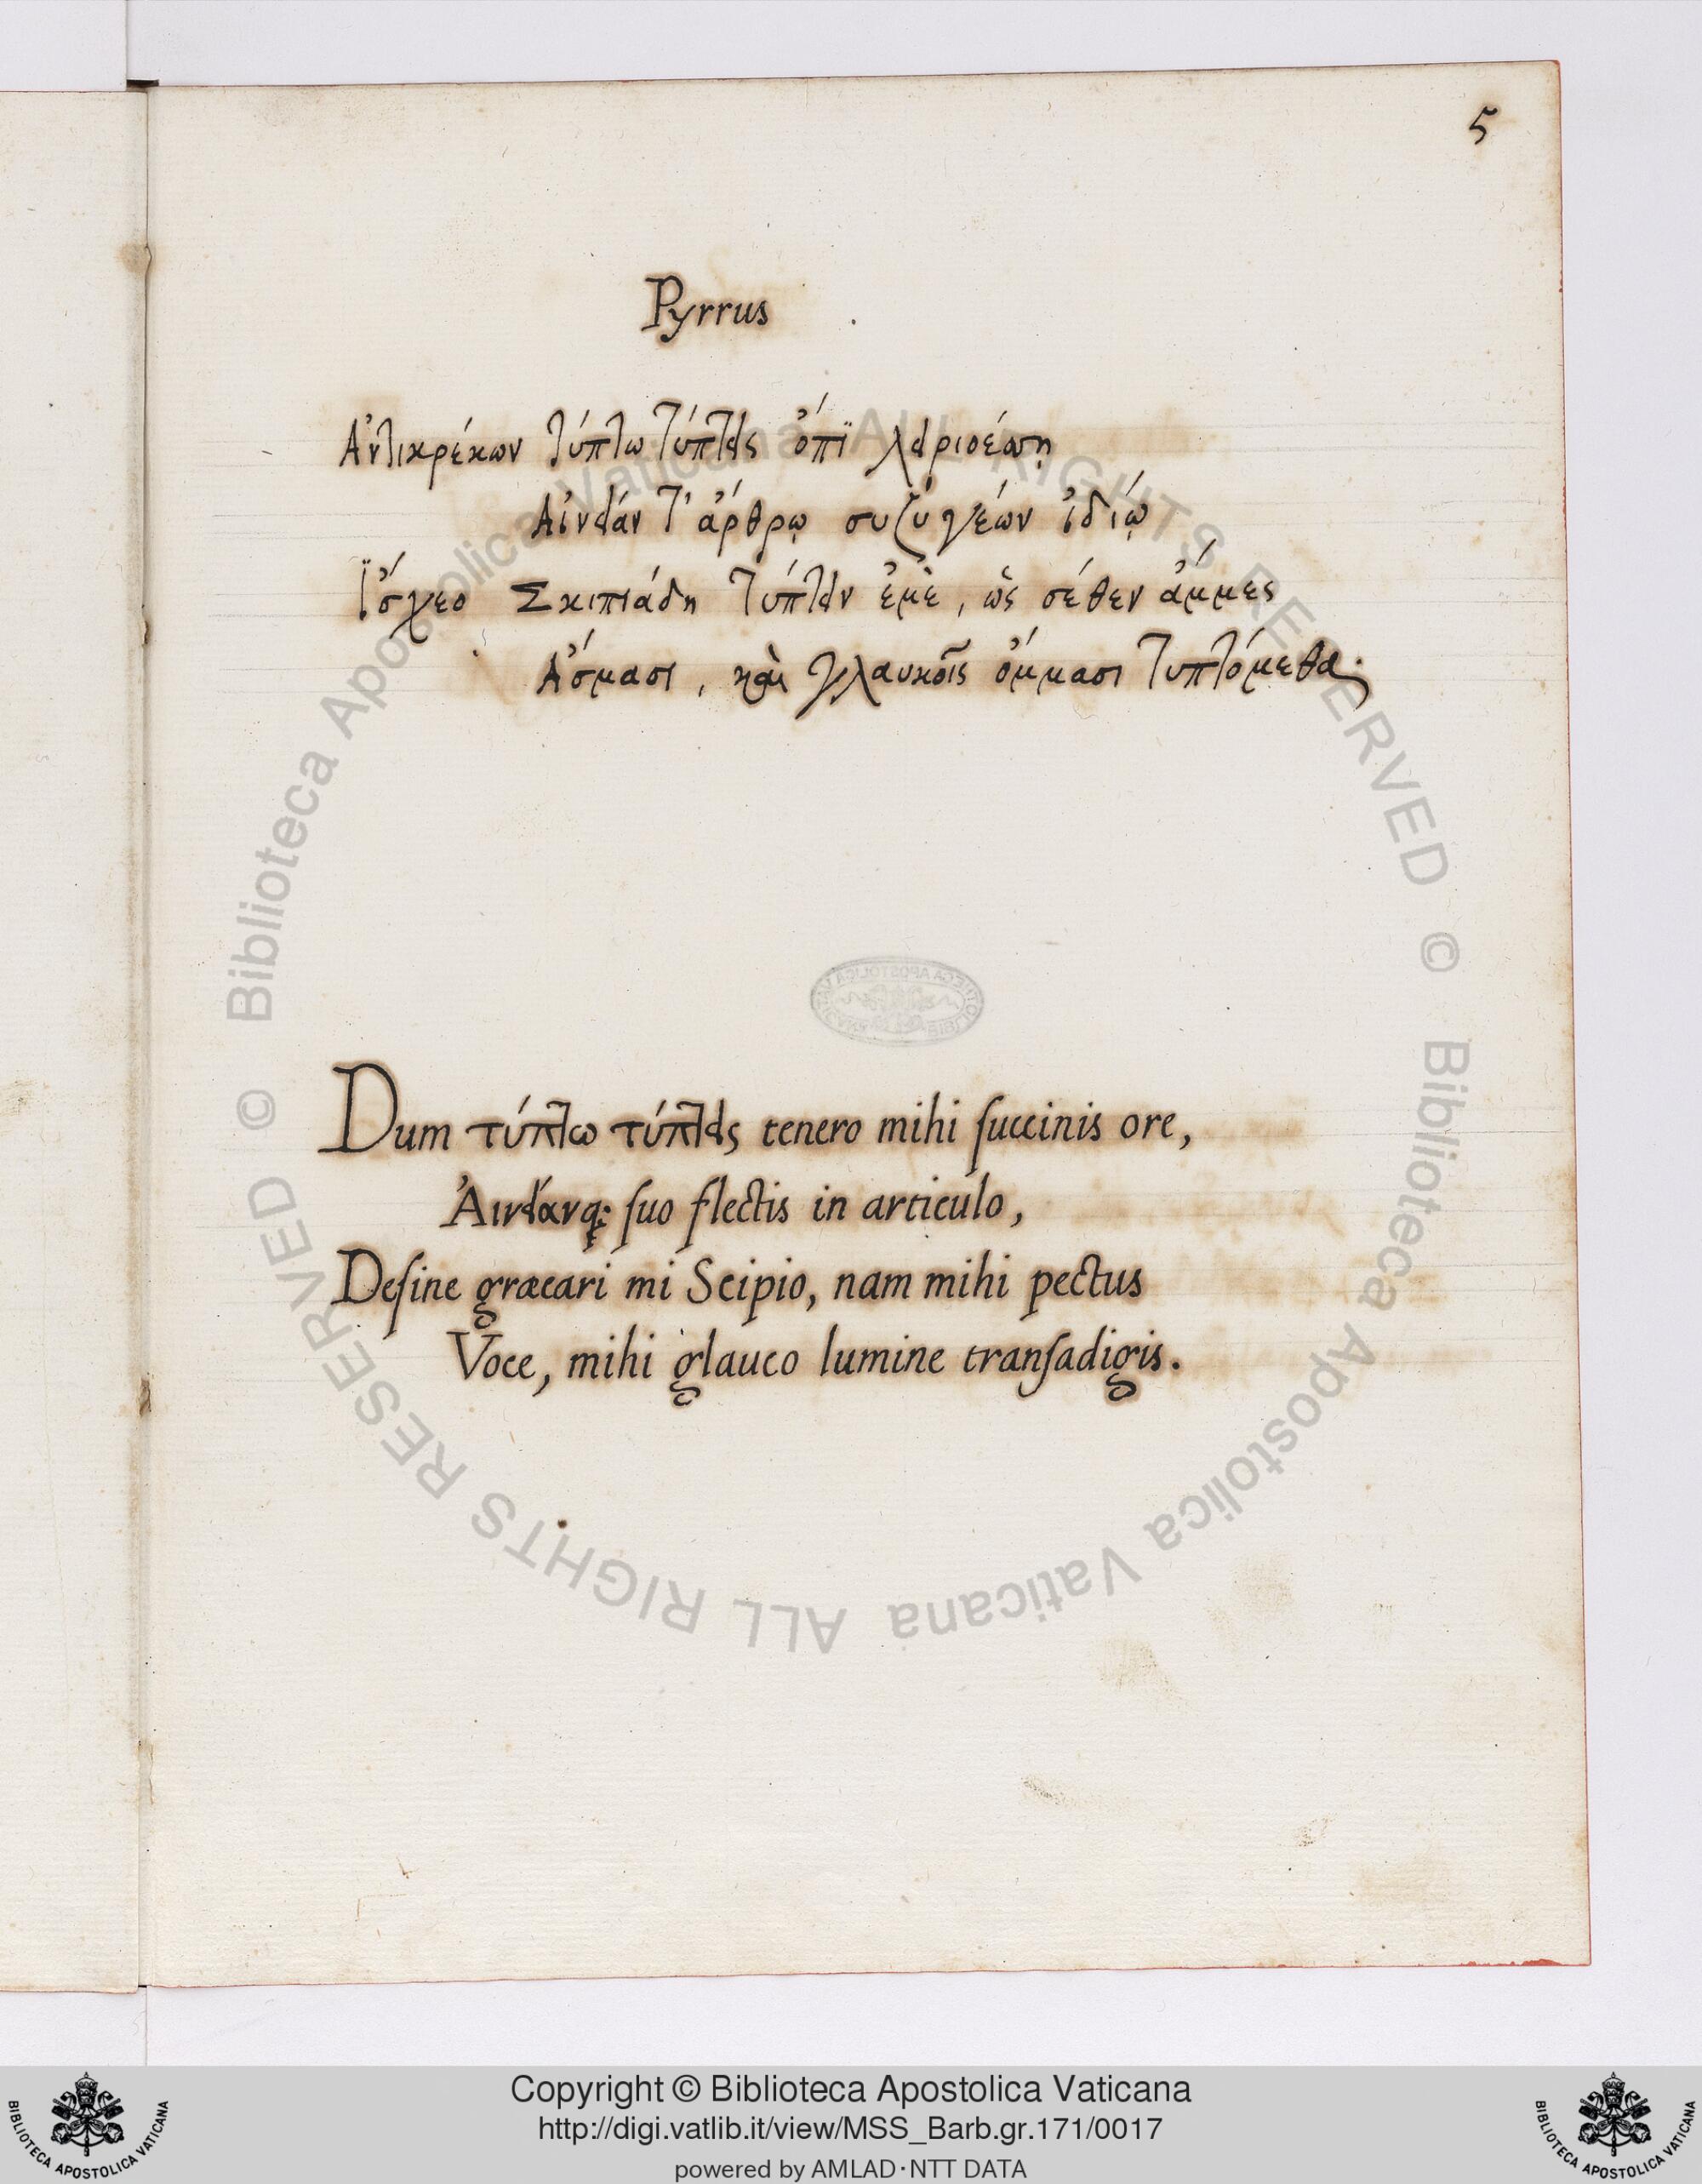 5
Pyrrus
Ἀντικρέκων τύπτω τύπτεις ὀπὶ
Αἰνείαν τ' ἄρθρῳ συζυγέων ἰδίῳ
Ἴσχεο Σκιπιάδη τύπτειν ἐμὲ, ὡς σέθεν ἄμμες
Ἄσμασι, καὶ γλαυκοῖς ὄμμασι τυπτόμεθα.
Dum τύπτω τύπτεις tenero mihi succinis ore,
Ἀινείανq; suo flectis in articulo,
Desine græcari mi Scipio, nam mihi pectus
Voce, mihi glauco lumine transadigis.
© Biblioteca Apostolica Vaticana ALL RIGHTS RESERVED
© Biblioteca Apostolica Vaticana ALL RIGHTS RESERVED
BIBLIOTECA APOSTOLICA VATICANA
Copyright © Biblioteca Apostolica Vaticana
http://digi.vatlib.it/view/MSS_Barb.gr.171/0017
powered by AMLAD·NTT DATA
BIBLIOTECA APOSTOLICA VATICANA